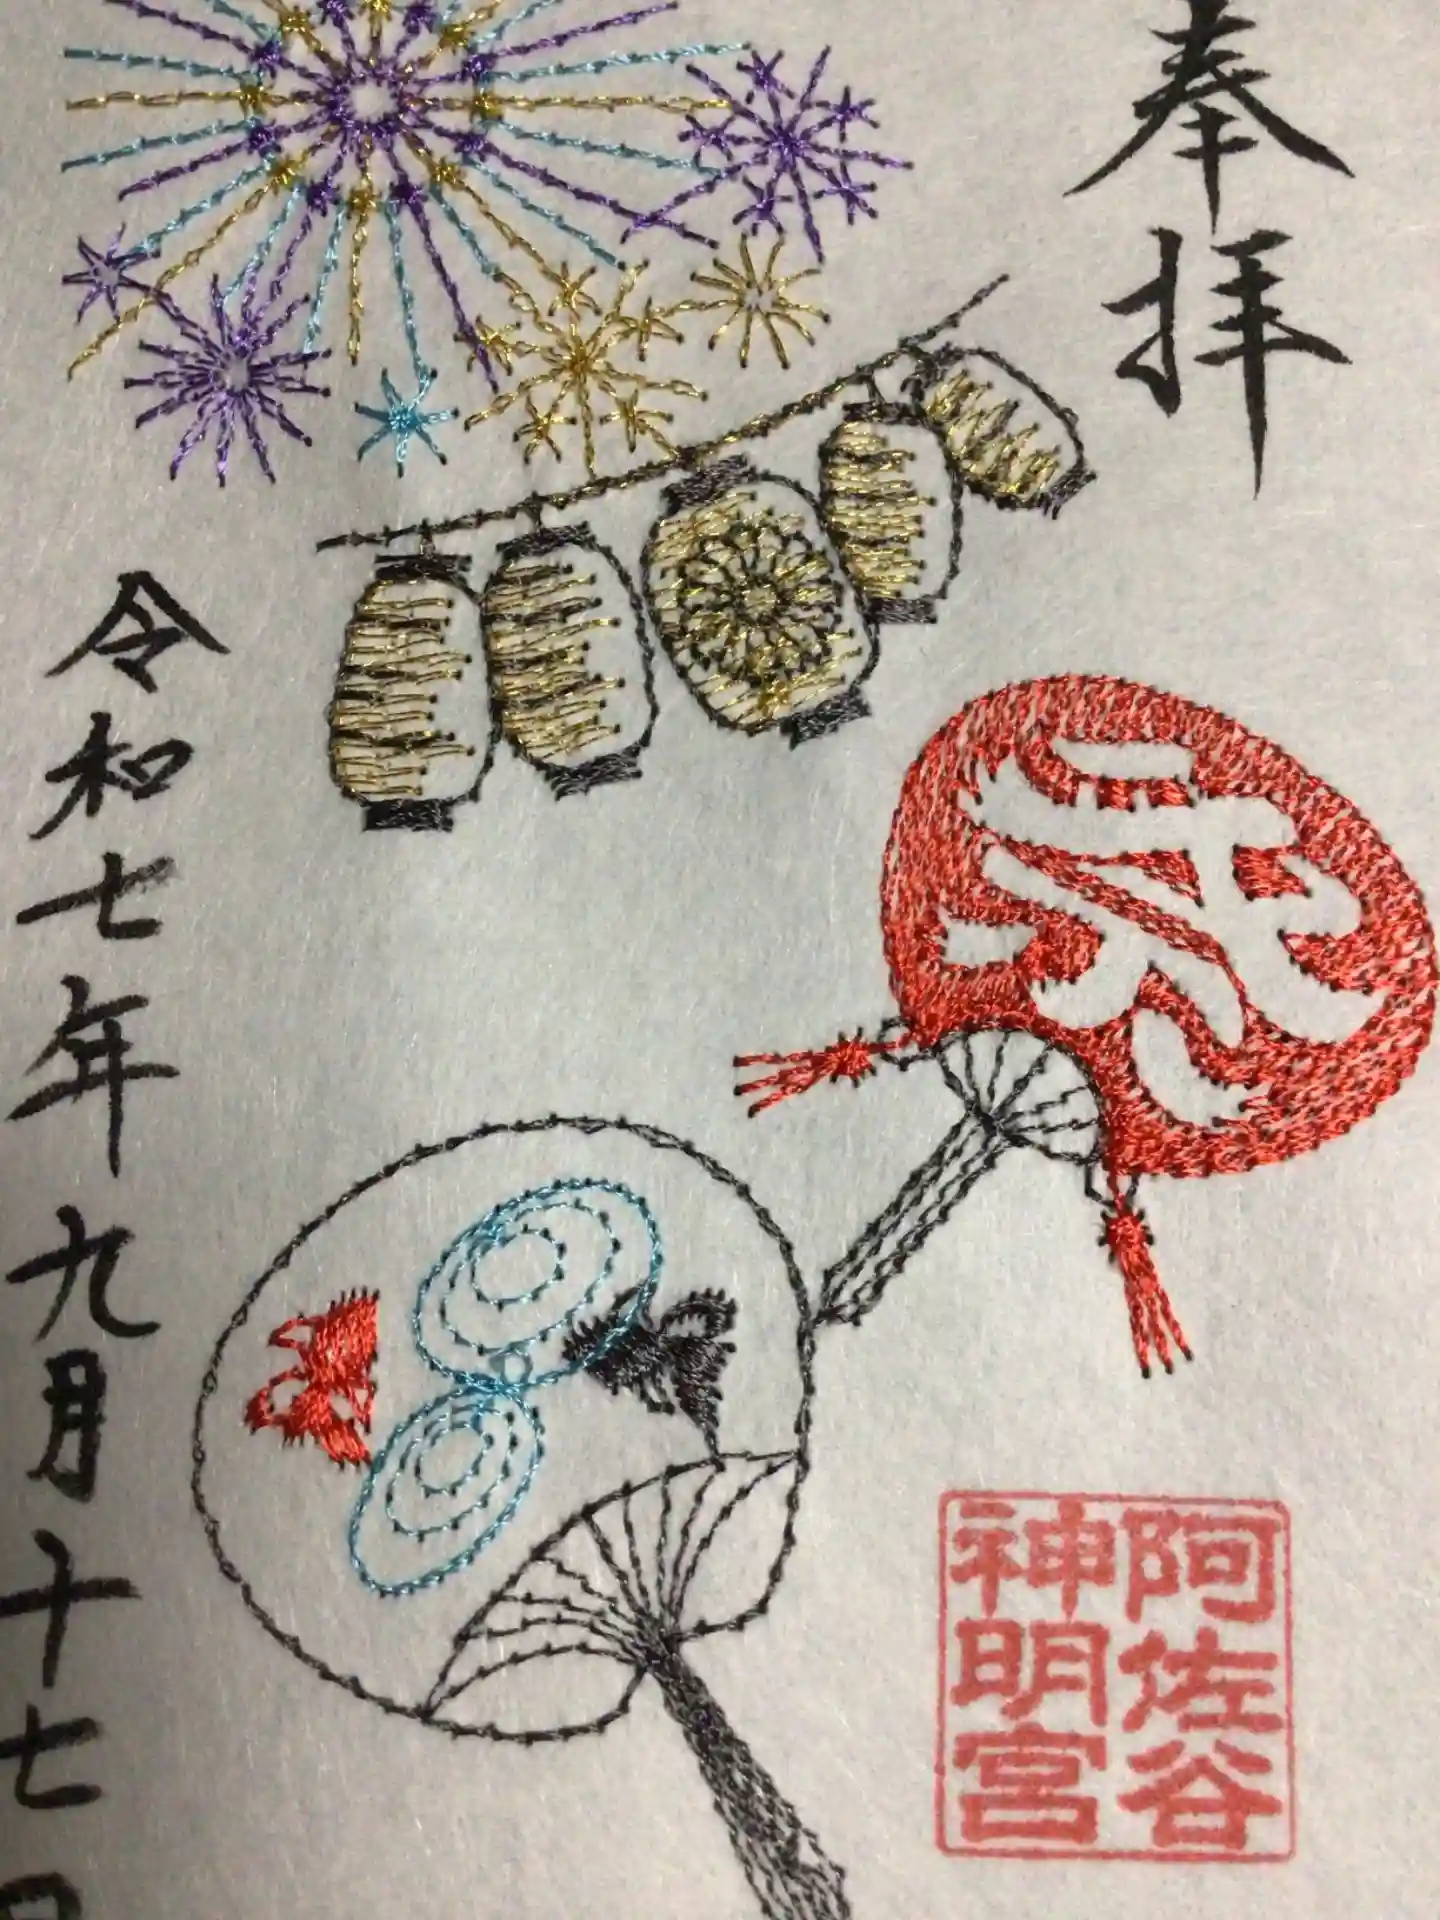 奉拝
祭
令和七年九月十七日
阿佐谷
神明宮